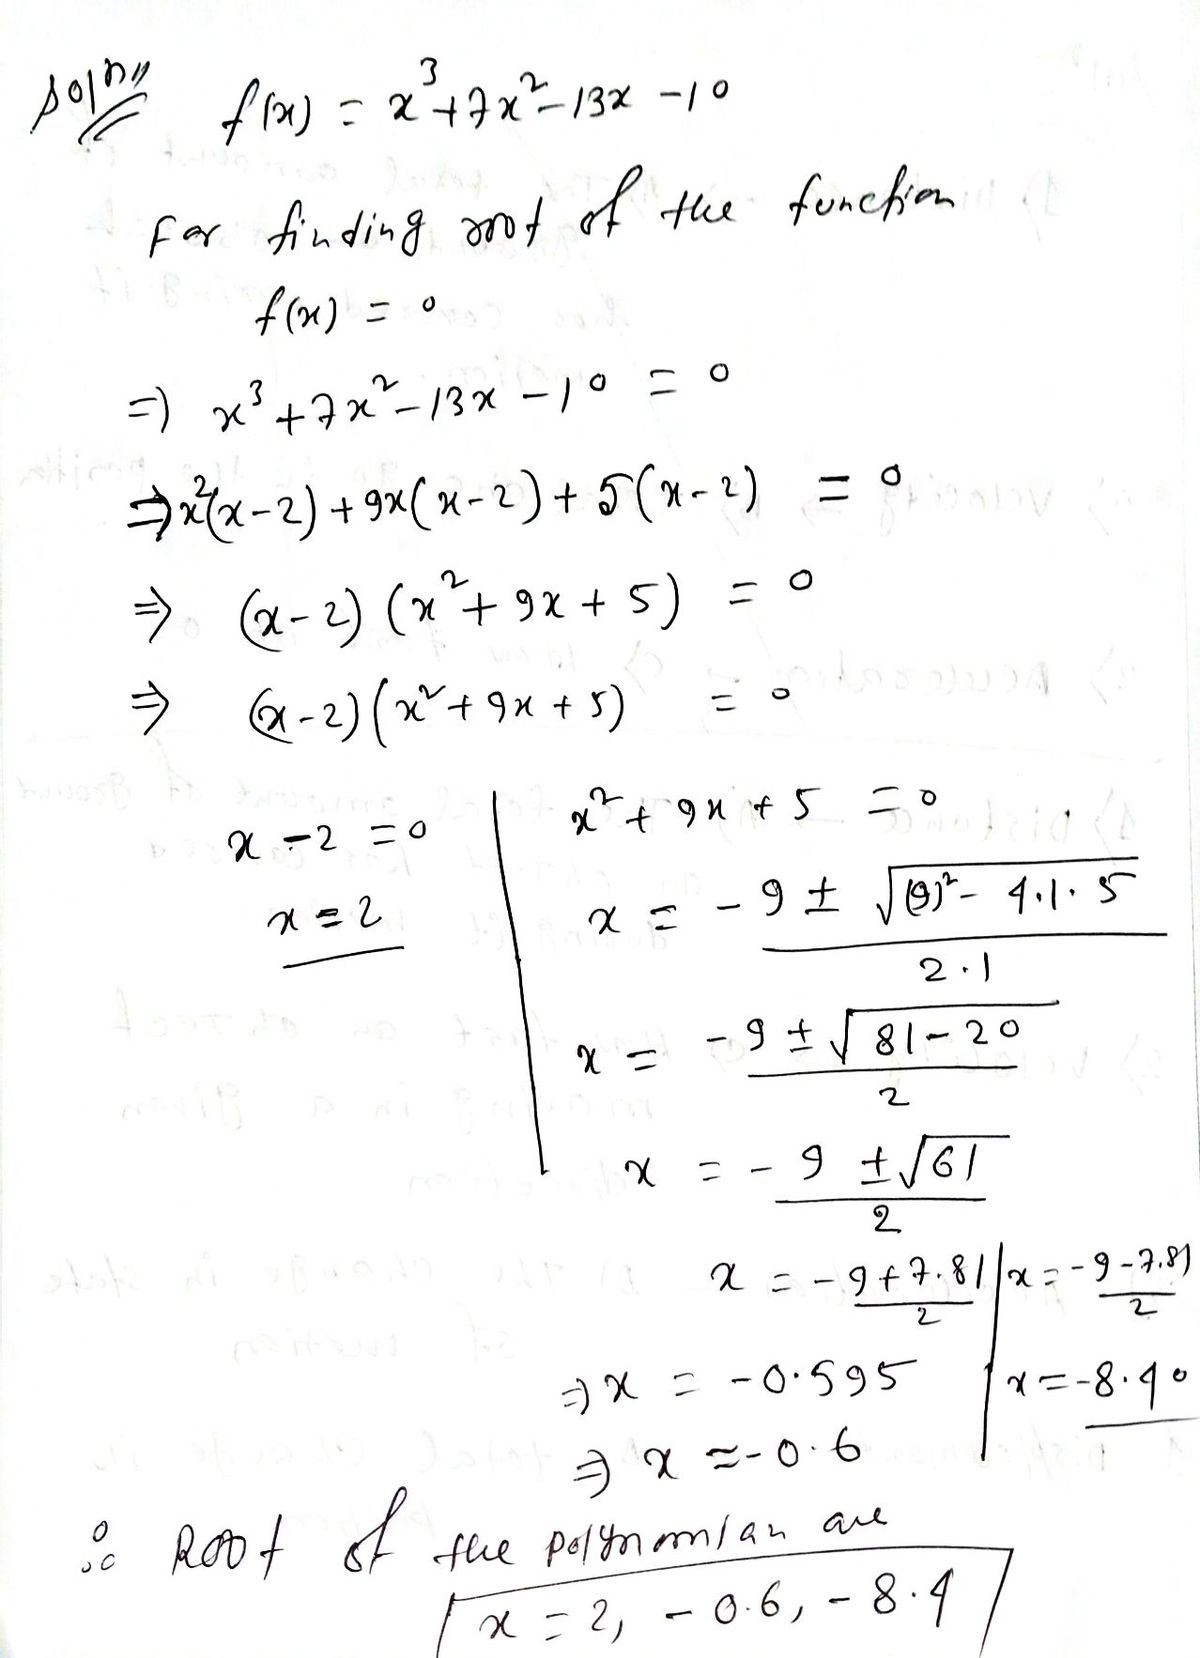 Soln
f(x) = x³+7x²-13x -10
For finding root of the function
f(x) = 0
=) x³+7x²-13x -10 = 0
⇒x²(x-2)+9x(x-2)+5(x-2) = 0
⇒ (x-2) (x²+9x+5) = 0
⇒ (x-2)(x²+9x+5) = 0
x-2 =0
x=2
x²+9x+5 =0
x = -9 ± √(9)²- 4.1.5 / 2.1
x = -9 ± √81-20 / 2
x = -9 ±√61 / 2
x = -9+7.81 / 2 | x = -9-7.81 / 2
=) x = -0.595 | x=-8.40
=) x ≈-0.6
∴ Root of the polynomian are
x = 2, -0.6, -8.4